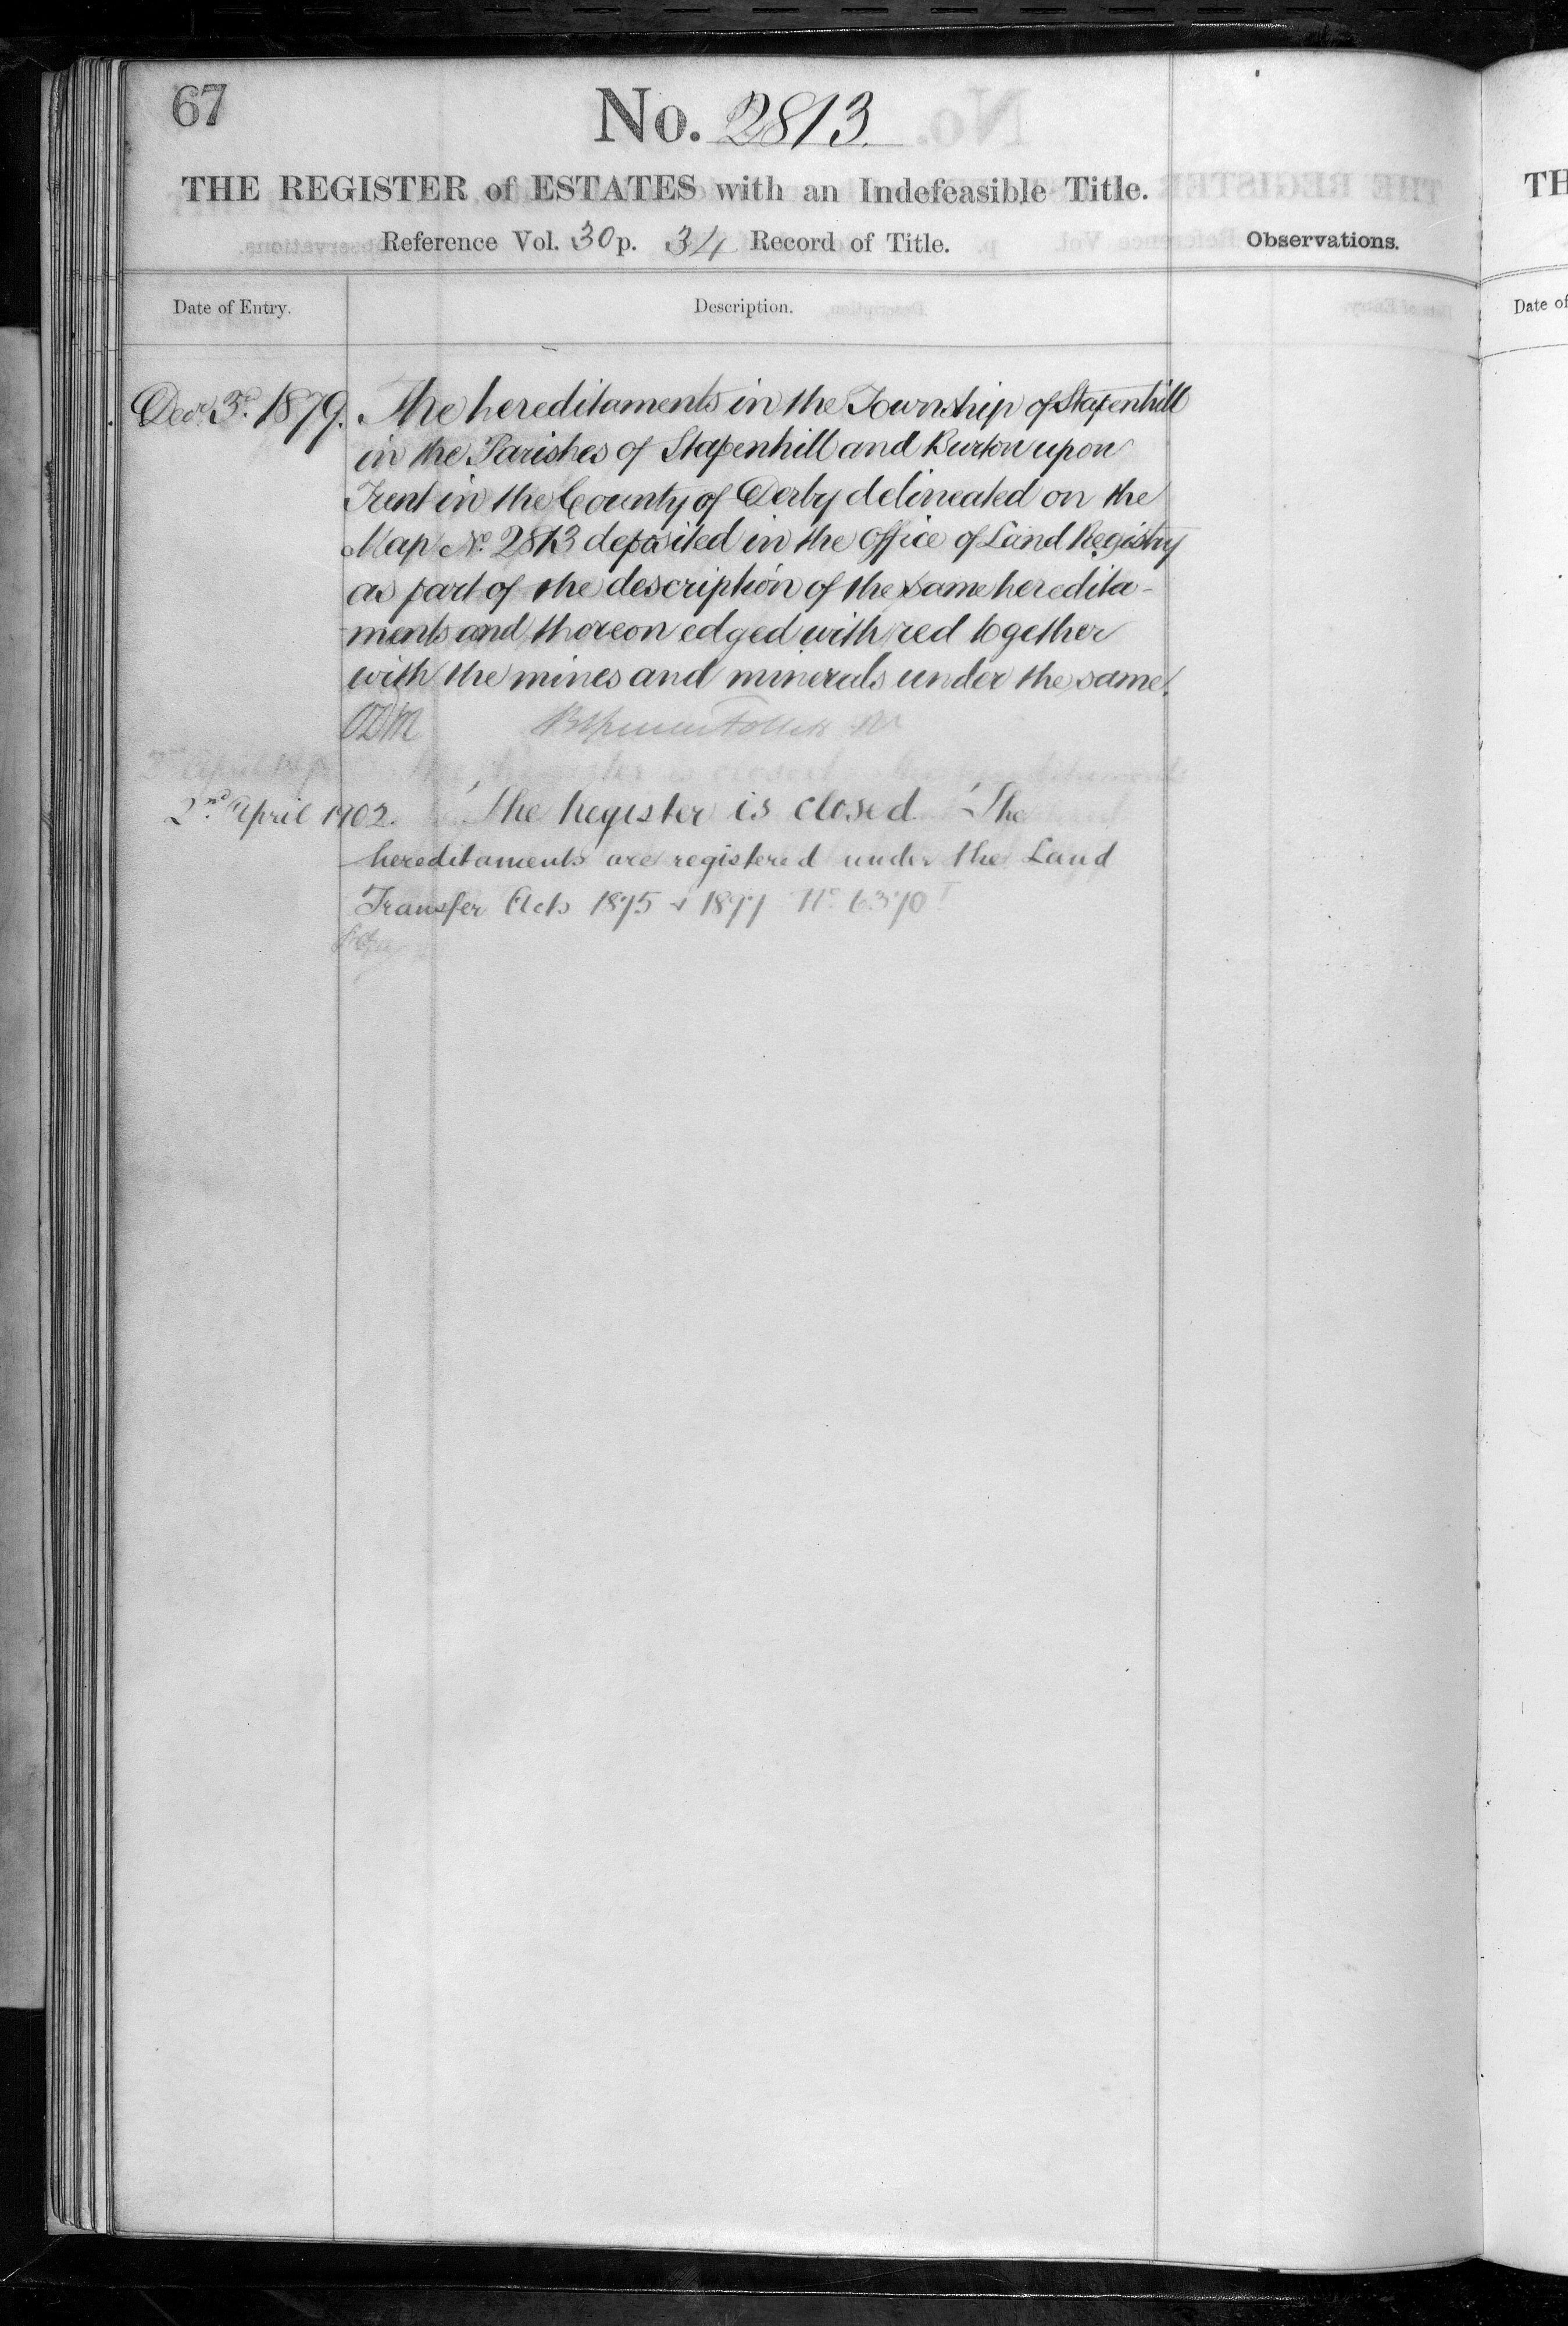 67
No. 2813.
THE REGISTER of ESTATES with an Indefeasible Title.
Reference Vol. 30 p. 34 Record of Title.
Observations.
Date of Entry.
Description.
Decr. 3d. 1879. The hereditaments in the Township of Stapenhill
in the Parishes of Stapenhill and Burton upon
Trent in the County of Derby delineated on the
Map No. 2813 deposited in the Office of Land Registry
as part of the description of the same heredita-
ments and thereon edged with red together
with the mines and minerals under the same.
2nd April 1902. The Register is closed. The
hereditaments are registered under the Land
Transfer Acts 1875 & 1897 No. 6370
TH
Date of